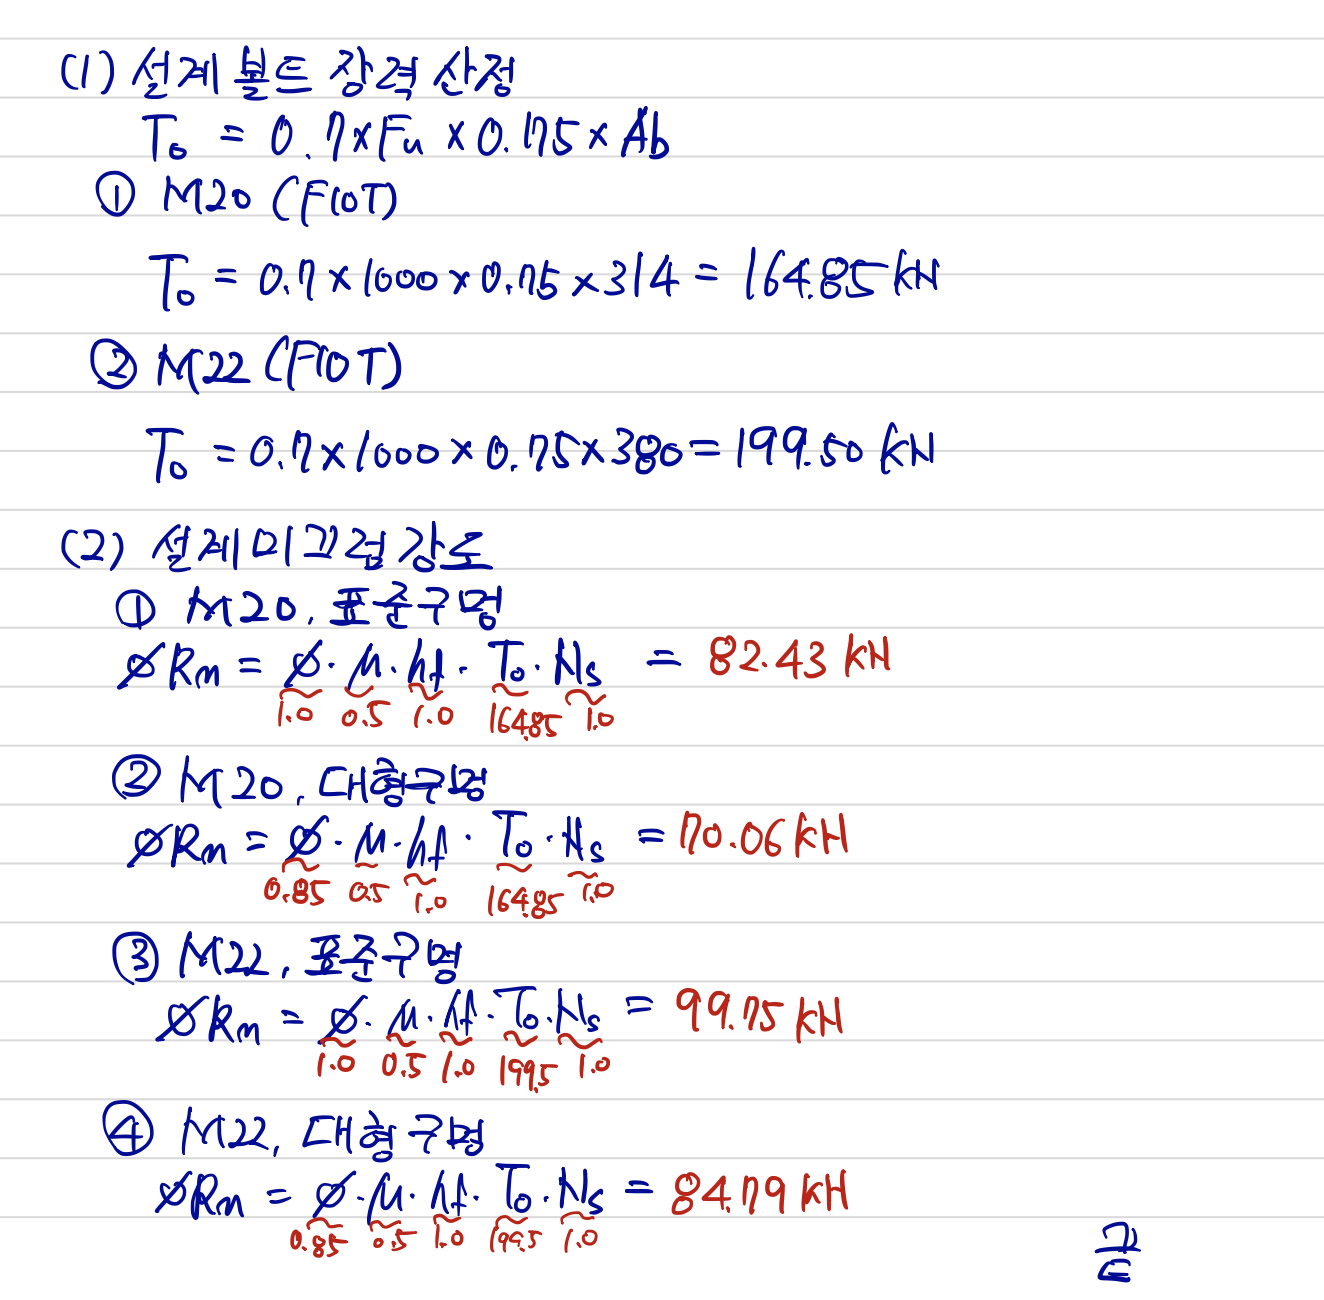 (1) 설계볼트장력산정
T₀ = 0.7×Fu×0.75×Ab
① M20 (F10T)
T₀ = 0.7×1000×0.75×314 = 164.85 kN
② M22 (F10T)
T₀ = 0.7×1000×0.75×380 = 199.50 kN
(2) 설계미끄럼강도
① M20, 표준구멍
øRn = ø·μ·hf·T₀·Ns = 82.43 kN
1.0 0.5 1.0 164.85 1.0
② M20, 대형구멍
øRn = ø·μ·hf·T₀·Ns = 70.06 kN
0.85 0.5 1.0 164.85 1.0
③ M22, 표준구멍
øRn = ø·μ·hf·T₀·Ns = 99.75 kN
1.0 0.5 1.0 199.5 1.0
④ M22, 대형구멍
øRn = ø·μ·hf·T₀·Ns = 84.79 kN
0.85 0.5 1.0 199.5 1.0
끝